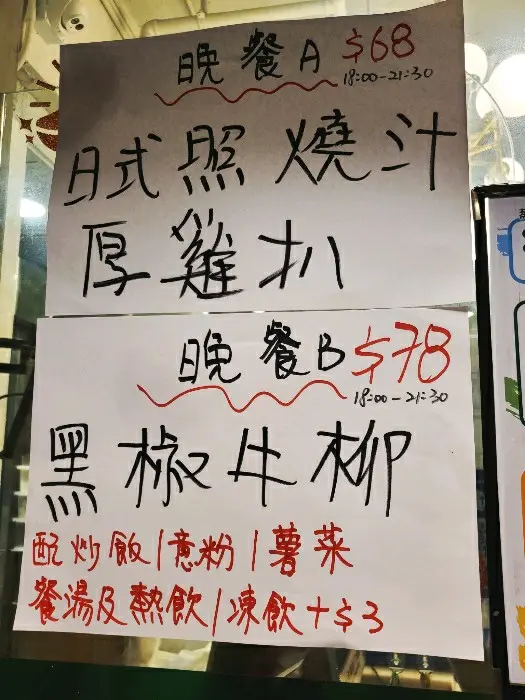 晚餐A $68
18:00-21:30
日式照燒汁
厚雞扒
晚餐B $78
18:00-21:30
黑椒牛柳
配炒飯/意粉/薯菜
餐湯及熱飲/凍飲+$3